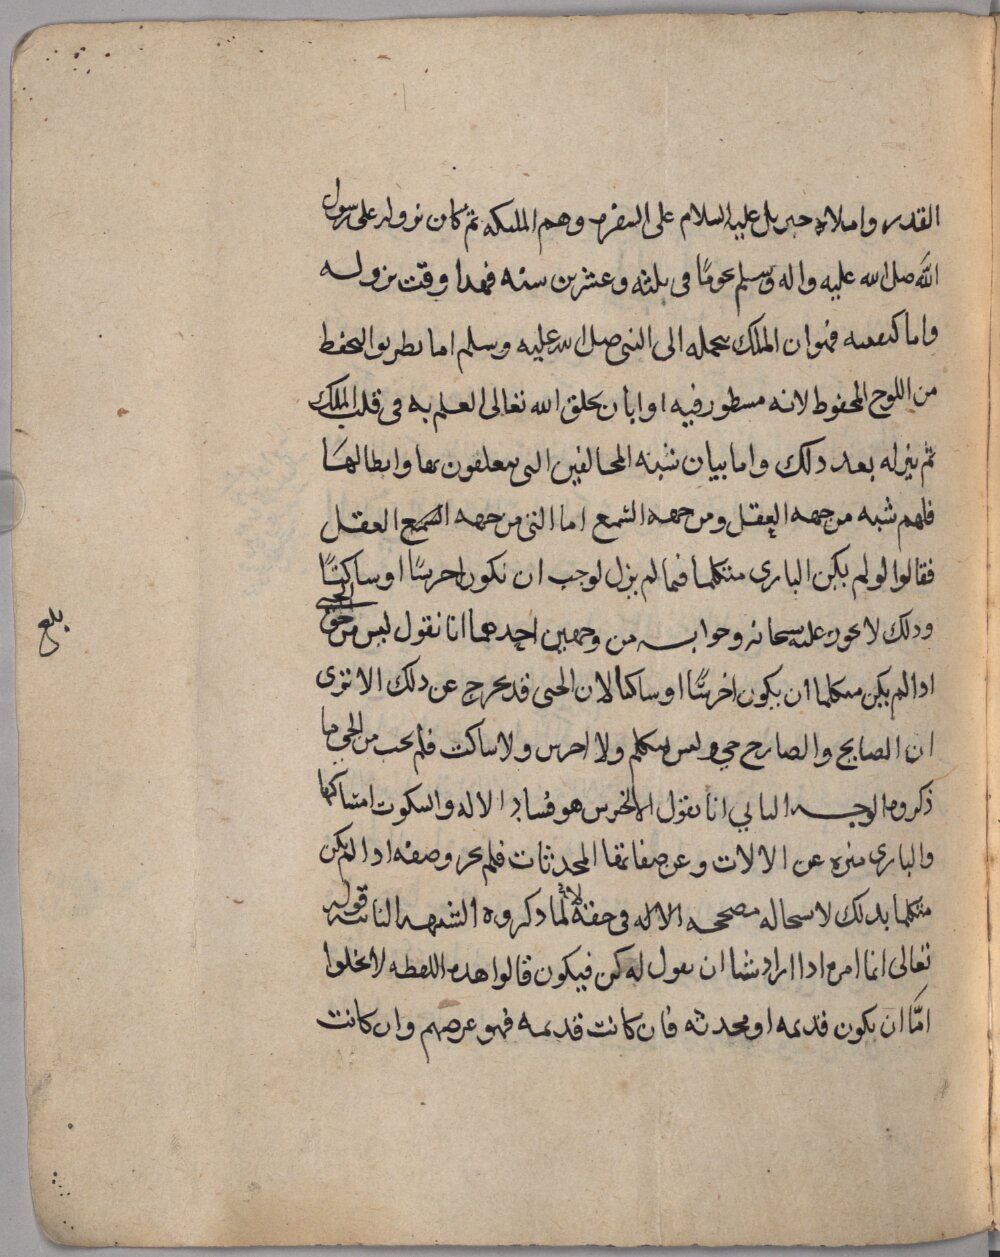 القدر واملاه جبريل عليه السلام على السفره وهم الملئكه ثم كان نزوله على رسول
الله صلى الله عليه واله وسلم نجومًا فى ثلثه وعشرين سنه فهذا وقت نزوله
واما كيفيته فهو ان الملك يحمله الى النبى صلى الله عليه وسلم اما بطريق التحفظ
من اللوح المحفوظ لانه مسطور فيه او بأن يخلق الله تعالى العلم به فى قلب الملك
ثم ينزله بعد ذلك واما بيان شبه المخالفين التى يتعلقون بها وابطالها
فلهم شبه من جهه العقل ومن جهه السمع اما التى من جهه العقل
فقالوا لو لم يكن البارى متكلما فيما لم يزل لوجب ان يكون اخرسًا او ساكتًا
وذلك لا يجوز عليه سبحانه وجوابه من وجهين احدهما انا نقول ليس من حق الحى
اذا لم يكن متكلما ان يكون اخرسًا او ساكتا لان الحى قد يخرج عن ذلك الا ترى
ان الصايح والصارخ حي وليس بمتكلم ولا اخرس ولا ساكت فلم يجب من الحي ما
ذكروه الوجه الثاني انا نقول الخرس هو فساد الاله والسكوت امساكها
والبارى منزه عن الالات وعن صفات المحدثات فلم يجز وصفه اذا لم يكن
متكلما بذلك لاستحاله مصححه الاله فى حقه لا لما ذكروه الشبهه الثانيه قوله
تعالى انما امره اذا اراد شيا ان يقول له كن فيكون قالوا هذه اللفظه لا يخلوا
امّا ان يكون قديمه او محدثه فان كانت قديمه فهو غرضهم وان كانت
بلغ